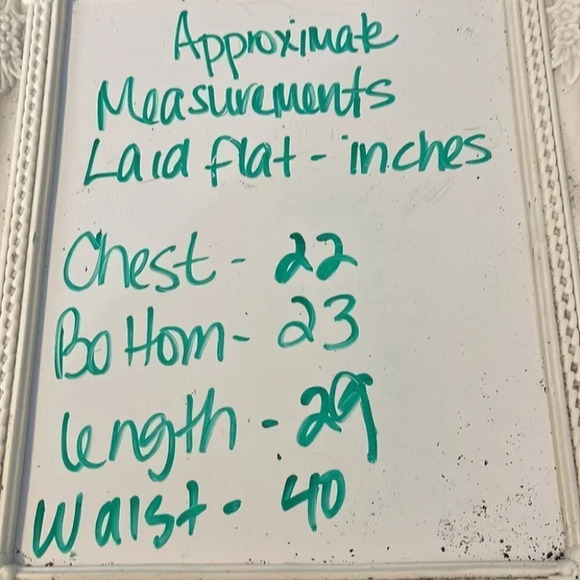 Approximate
Measurements
Laid flat - inches
Chest - 22
Bottom - 23
length - 29
Waist - 40